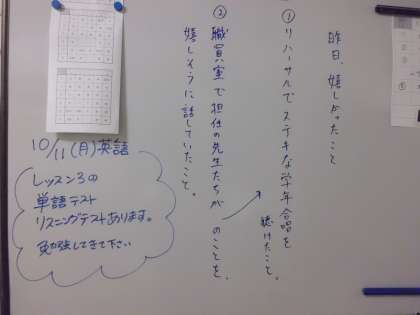 昨日、嬉しかったこと
①リハーサルでステキな学年合唱を
聴けたこと。
②職員室で担任の先生たちが のことを、
嬉しそうに話していたこと。
10/11(月)英語
レッスン3の
単語テスト
リスニングテストあります。
勉強してきて下さい